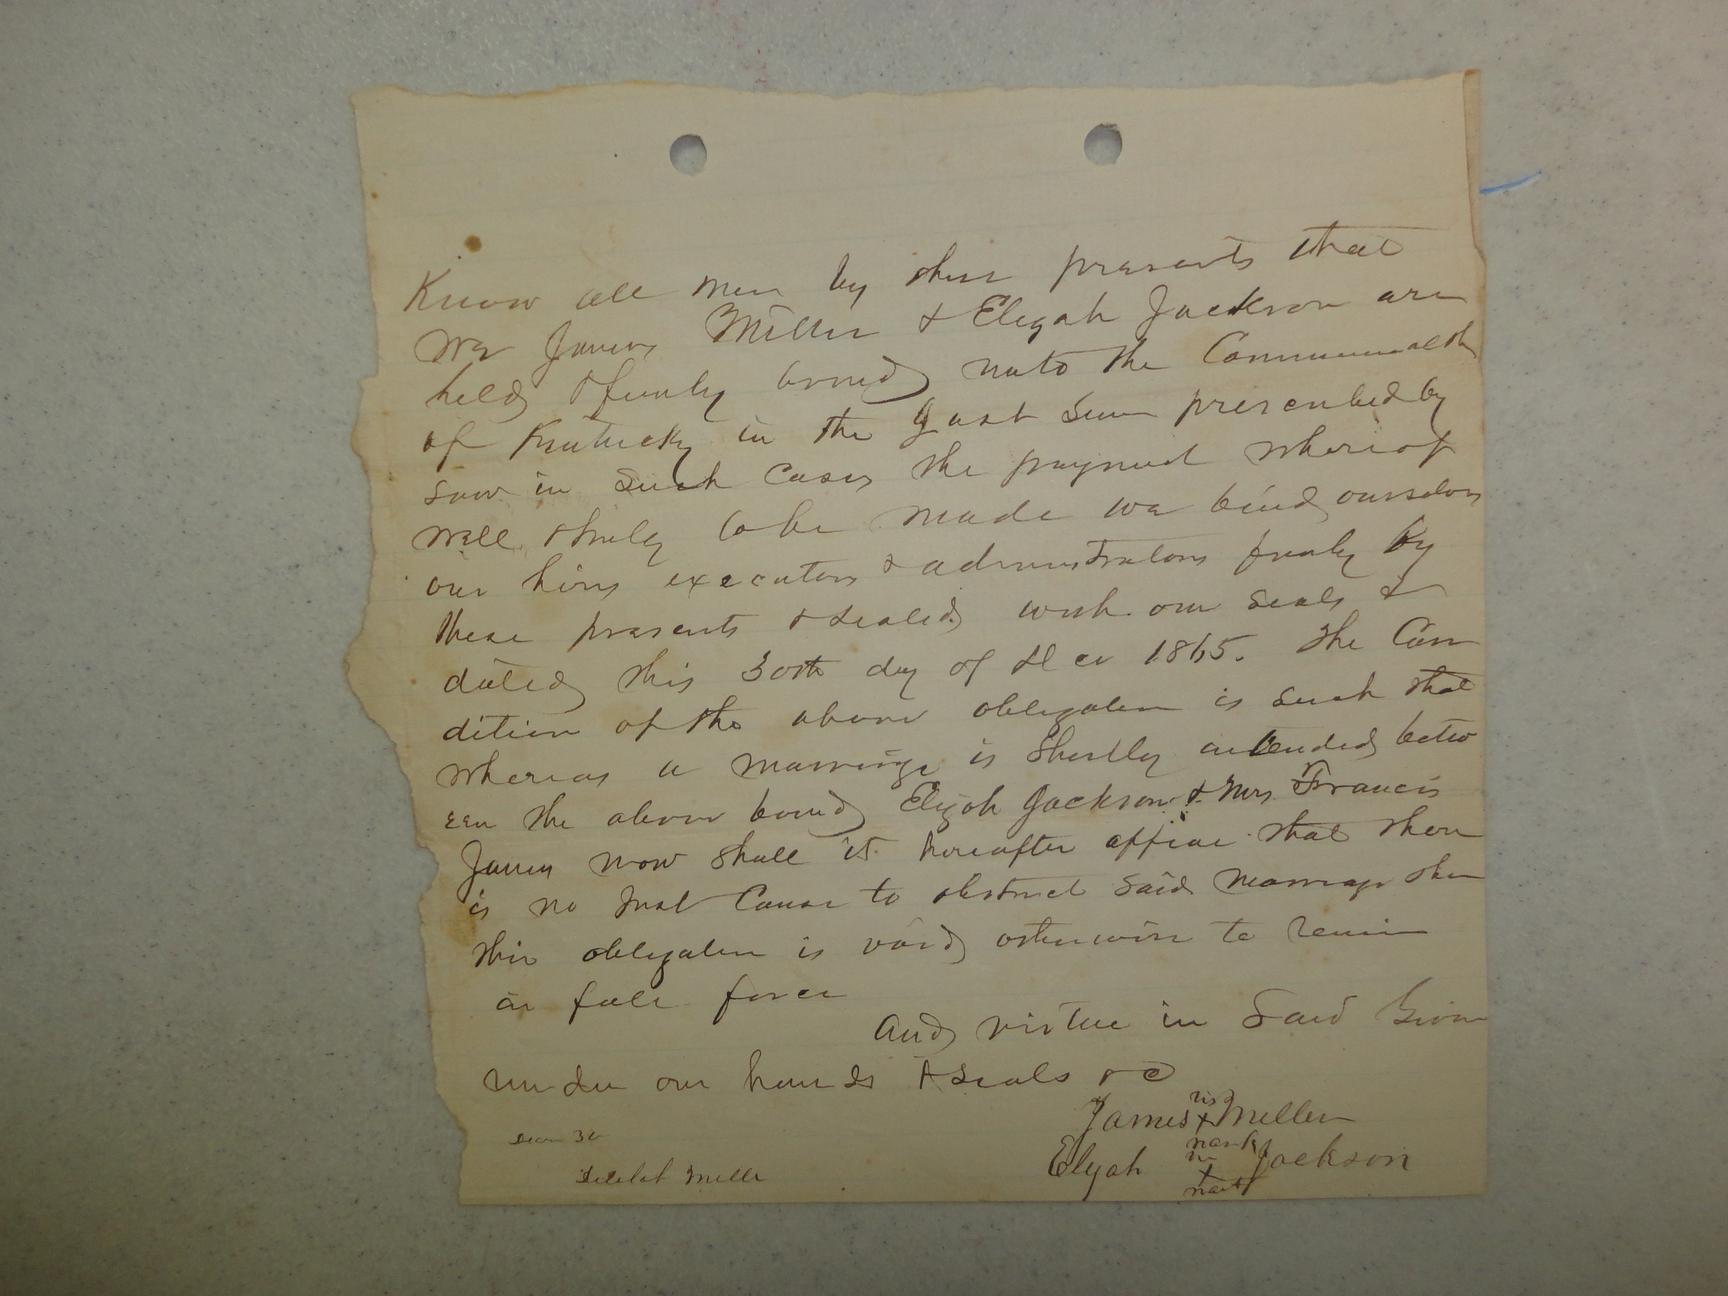 Know all men by these presents that
We James Miller & Elijah Jackson are
held & firmly bound unto the Commonwealth
of Kentucky in the Just Sum prescribed by
Law in Such Cases the payment whereof
well & truly to be made we bind ourselves
our heirs executors & administrators firmly by
these presents & sealed with our seals &
dated this 30th day of Dec 1865. The Con
dition of the above obligation is such that
whereas a marriage is Shortly intended betw
een the above bound Elijah Jackson & Mrs Francis
James now shall it hereafter appear that there
is no Just Cause to obstruct said marriage then
this obligation is void otherwise to remain
in full force
And virtue in Said Given
under our hands & seals &c
James his x mark Miller
Elijah his x mark Jackson
30
Delilah Miller